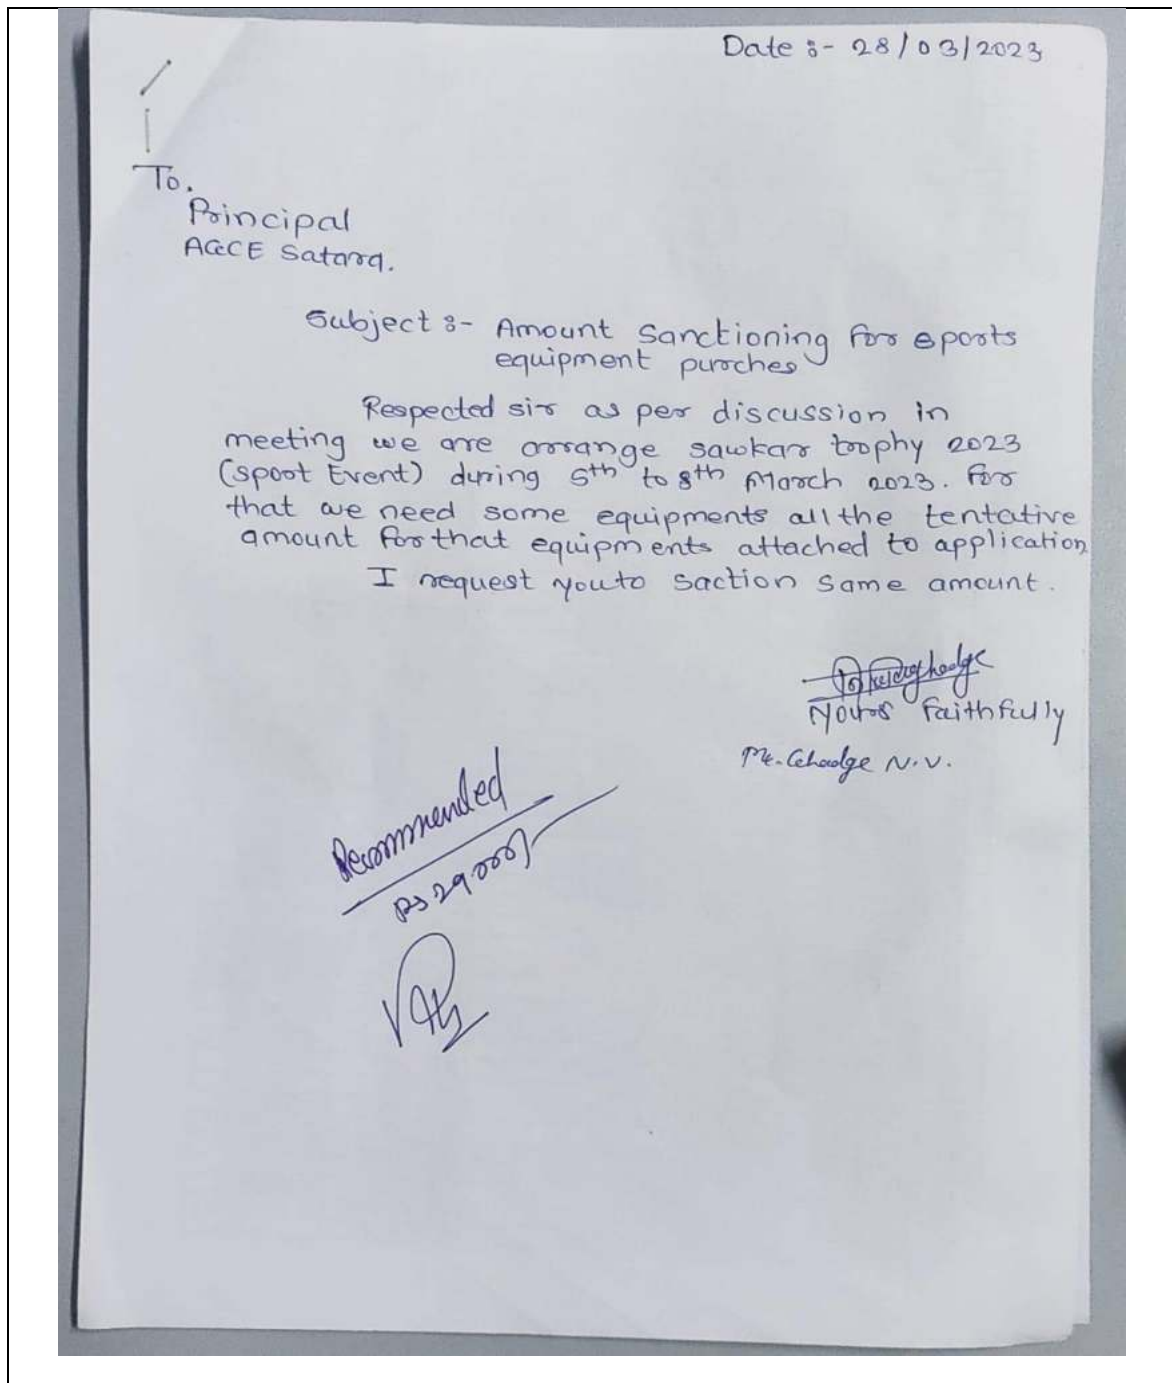 Date :- 28/03/2023
To.
Principal
AGCE Satara.
Subject :- Amount Sanctioning for sports
equipment purches
Respected sir as per discussion in
meeting we are arrange sawkar trophy 2023
(sport Event) during 5th to 8th March 2023. For
that we need some equipments all the tentative
amount for that equipments attached to application
I request you to saction same amount.
Yours faithfully
Mr. Ghadge N.V.
Recommended
Rs 29000/-